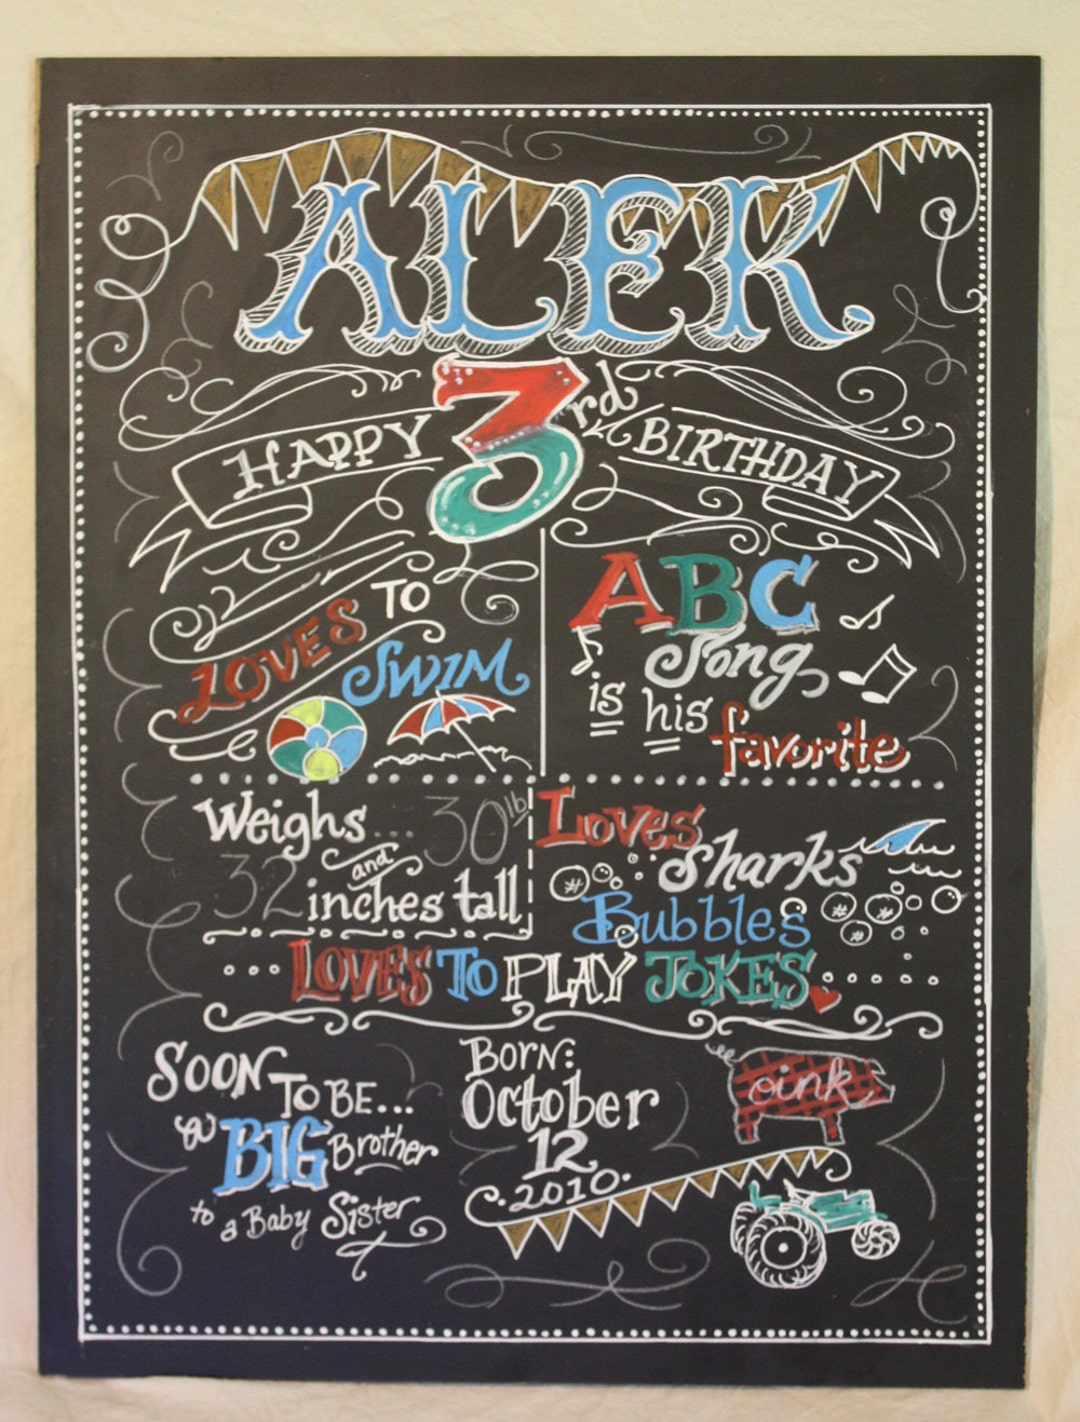 ALEK.
HAPPY 3rd BIRTHDAY
LOVES TO
SWIM
ABC
Song
is his
favorite
Weighs... 30 lb
and
32 inches tall
Loves
Sharks
Bubbles
...LOVES TO PLAY JOKES....
SOON
TO BE...
a BIG Brother
to a Baby Sister
BORN:
October
12
.2010.
oink